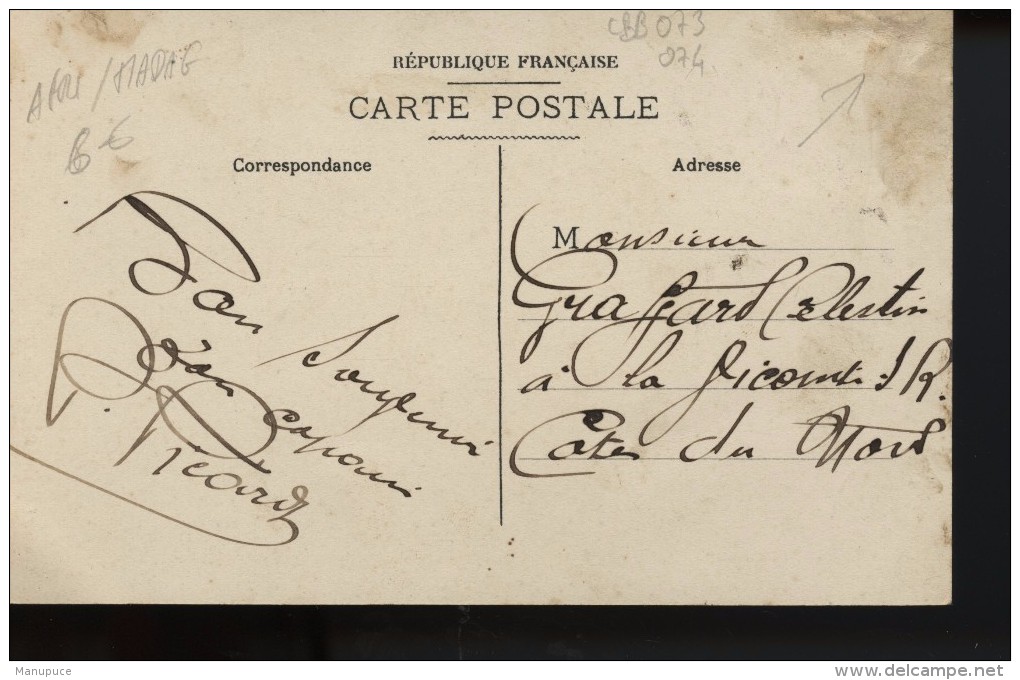 CBB 073
074
AFRI / MADAG
6 €
1
RÉPUBLIQUE FRANÇAISE
CARTE POSTALE
Correspondance
Bon Souvenir
d'an
P. Picard
Adresse
Monsieur
Graffard Célestin
à la Vicomté S/R.
Côtes du Nord
Manupuce
www.delcampe.net